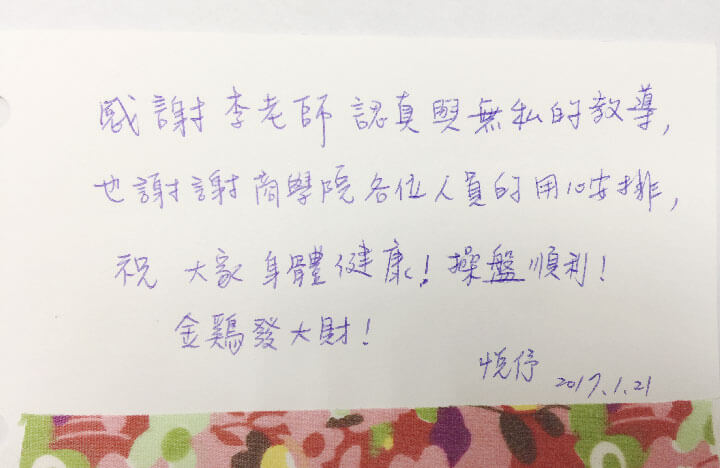 感謝李老師認真與無私的教導,
也謝謝商學院各位人員的用心安排,
祝 大家身體健康!操盤順利!
金鷄發大財!
悅伃
2017.1.21